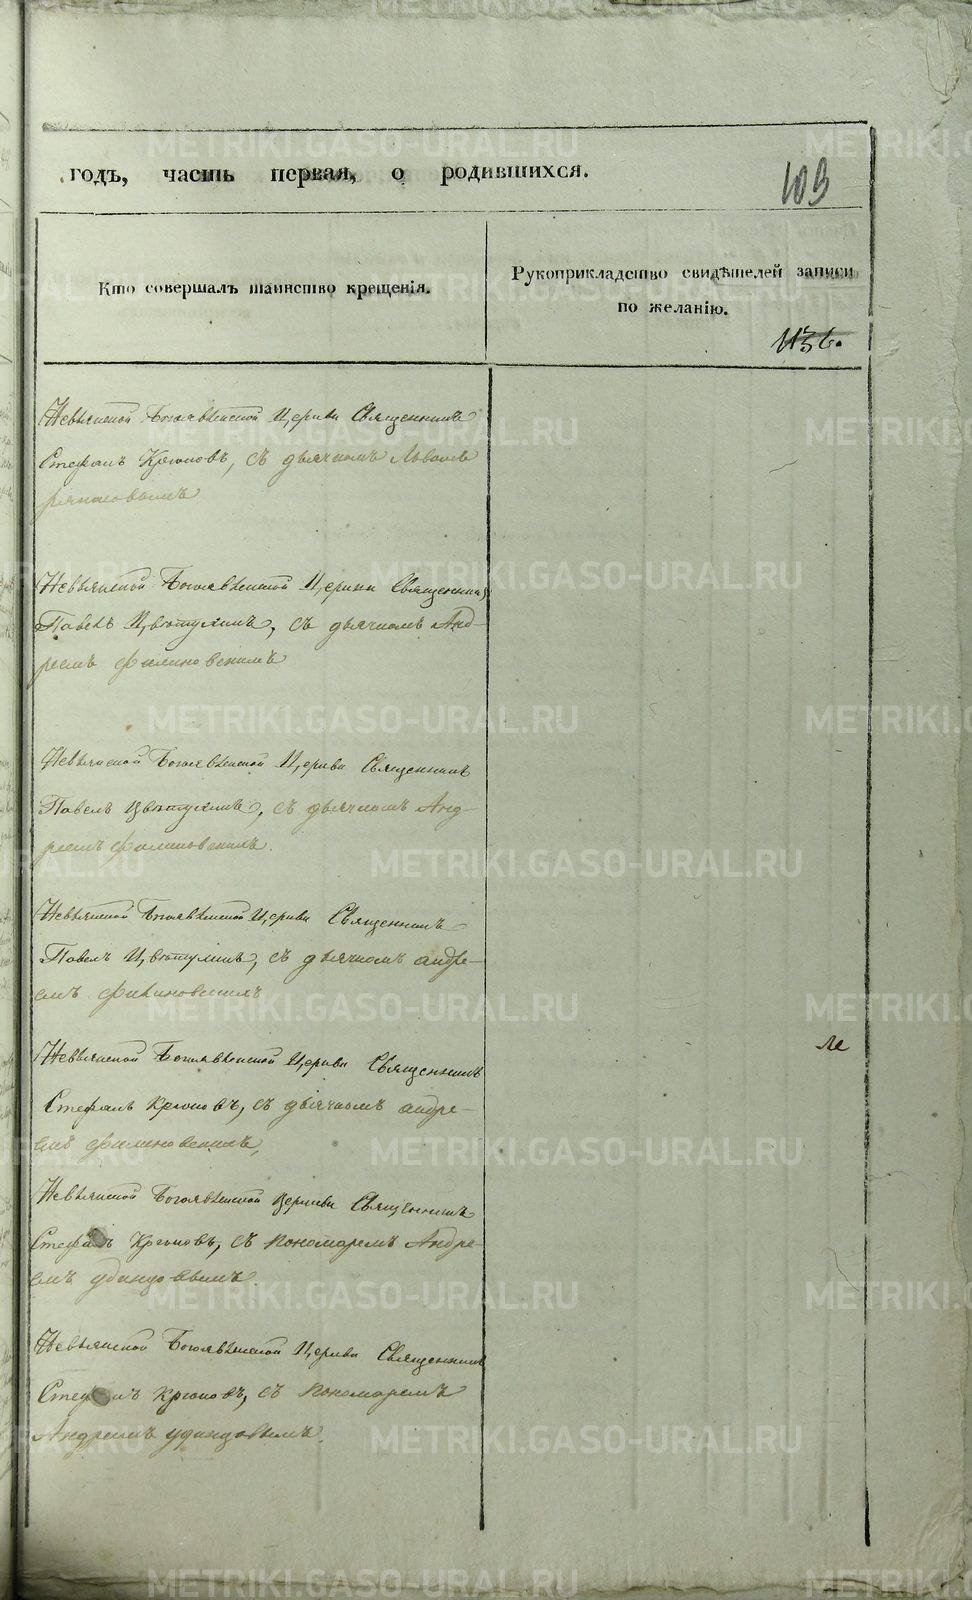 годъ, часть первая, о родившихся.
109
Кто совершалъ таинство крещенія.
Рукоприкладство свидѣтелей записи
по желанію.
Невьянской Богоявленской Церкви Священникъ
Стефанъ Крюковъ, съ дьячкомъ
Невьянской Богоявленской Церкви Священникъ
Павелъ Цвѣтухинъ, съ дьячкомъ Анд-
реемъ Филиновскимъ
Невьянской Богоявленской Церкви Священникъ
Павелъ Цвѣтухинъ, съ дьячкомъ Анд-
реемъ Филиновскимъ.
Невьянской Богоявленской Церкви Священникъ
Павелъ Цвѣтухинъ, съ дьячкомъ андре-
емъ Филиновскимъ
Невьянской Богоявленской Церкви Священникъ
Стефанъ Крюковъ, съ дьячкомъ андре-
емъ Филиновскимъ,
Невьянской Богоявленской Церкви Священникъ
Стефанъ Крюковъ, съ пономаремъ Андре-
емъ удинцовымъ
Невьянской Богоявленской Церкви Священникъ
Стефанъ Крюковъ, съ пономаремъ
Андреемъ удинцовымъ.
METRIKI.GASO-URAL.RU